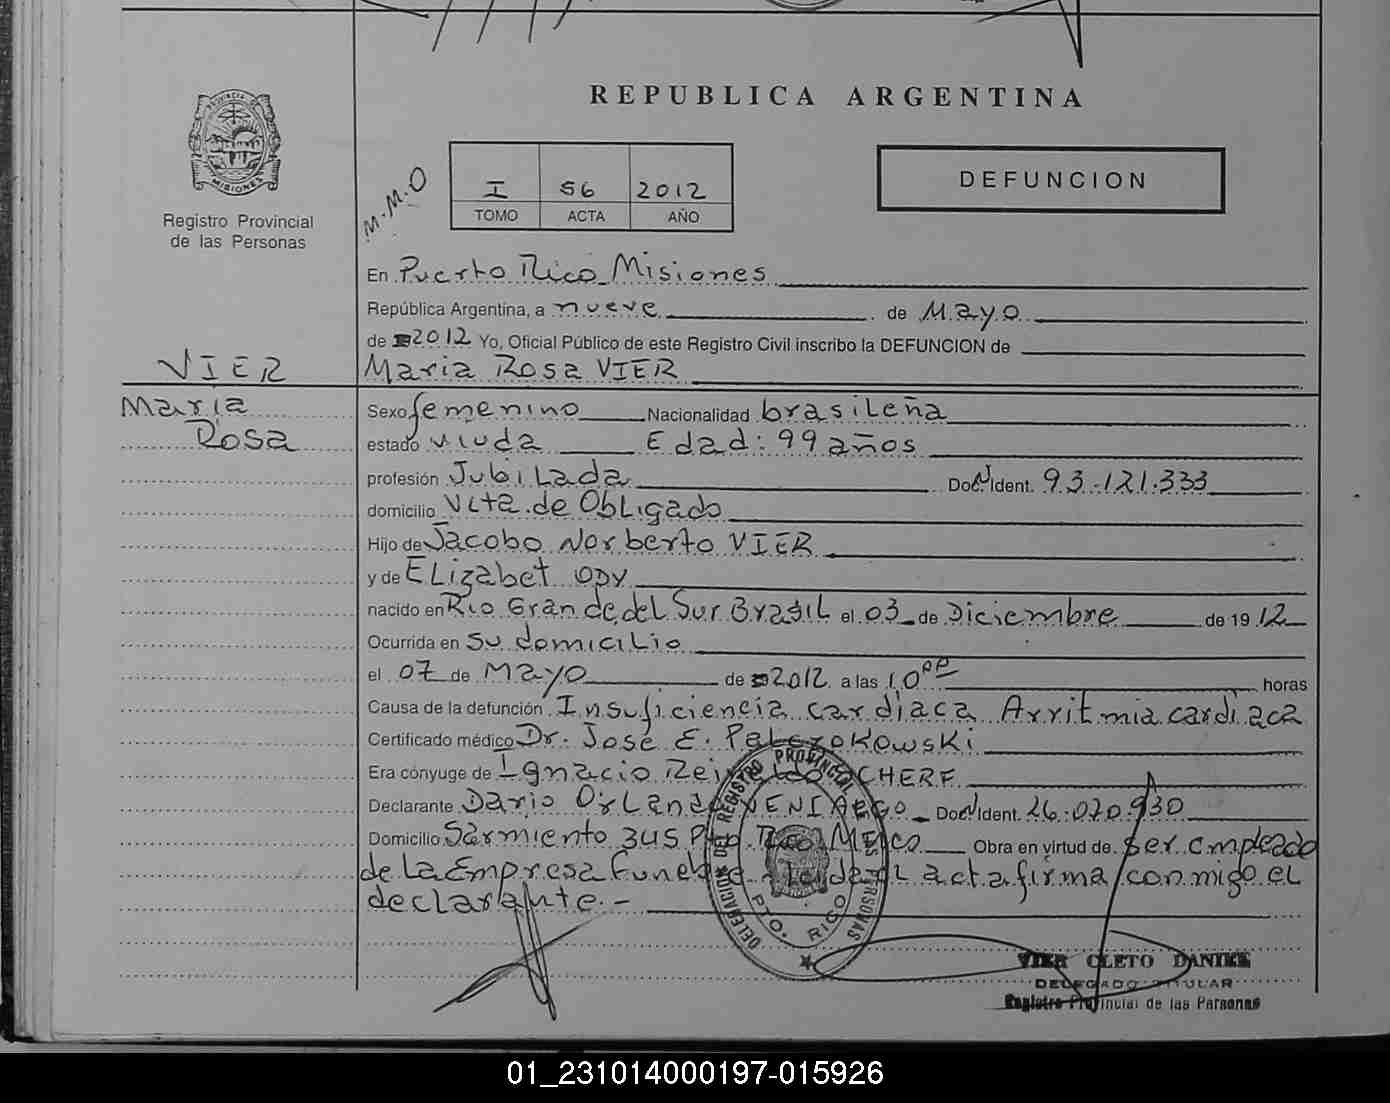 REPUBLICA ARGENTINA
PROVINCIA DE
MISIONES
Registro Provincial
de las Personas
M.M.O
I 56 2012
TOMO ACTA AÑO
DEFUNCION
En Puerto Rico Misiones
República Argentina, a nueve de Mayo
de 2012 Yo, Oficial Público de este Registro Civil inscribo la DEFUNCION de
VIER
Maria Rosa VIER
Maria
Rosa
Sexo femenino Nacionalidad brasileña
estado viuda Edad: 99 años
profesión Jubilada Doc. Ident. 93.121.333
domicilio Vlta. de Obligado
Hijo de Jacobo Norberto VIER
y de Elizabet ODY
nacido en Rio Grande del Sur Brasil el 03 de Diciembre de 1912
Ocurrida en su domicilio
el 07 de Mayo de 2012 a las 10 horas
Causa de la defunción Insuficiencia cardiaca Arritmia cardiaca
Certificado médico Dr. José E.
Era cónyuge de Ignacio CHERF
Declarante Dario Orlando Doc. Ident. 26.070.930
Domicilio Sarmiento 345 Pto Rico Obra en virtud de ser empleado
de la Empresa Funebre Leida el acta firma conmigo el
declarante.-
DELEGACION DEL REGISTRO PROVINCIAL DE LAS PERSONAS
PTO. RICO
VIER CLETO DANIEL
DELEGADO TITULAR
Registro Provincial de las Personas
01_231014000197-015926